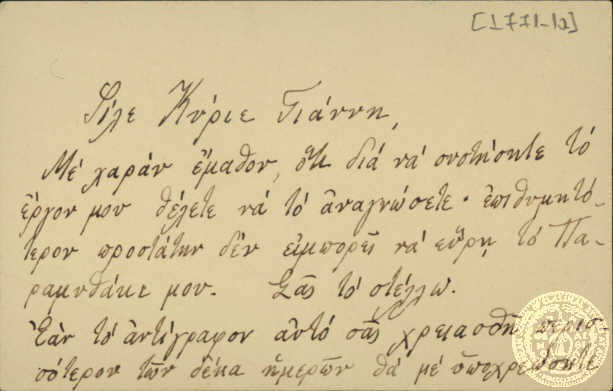 [1771-1a]
Φίλε Κύριε Γιάννη,
Μὲ χαρὰν ἔμαθον, ὅτι διὰ νὰ συστήσητε τὸ
ἔργον μου θέλετε νὰ τὸ ἀναγνώσετε· ἐπιθυμητό-
τερον προστάτην δὲν εἰμπορεῖ νὰ εὕρῃ τὸ Πα-
ραμυθάκι μου. Σᾶς τὸ στέλλω.
Ἐὰν τὸ ἀντίγραφον αὐτὸ σᾶς χρειασθῇ περισ-
σότερον τῶν δέκα ἡμερῶν θὰ μὲ ὑποχρεώσητε